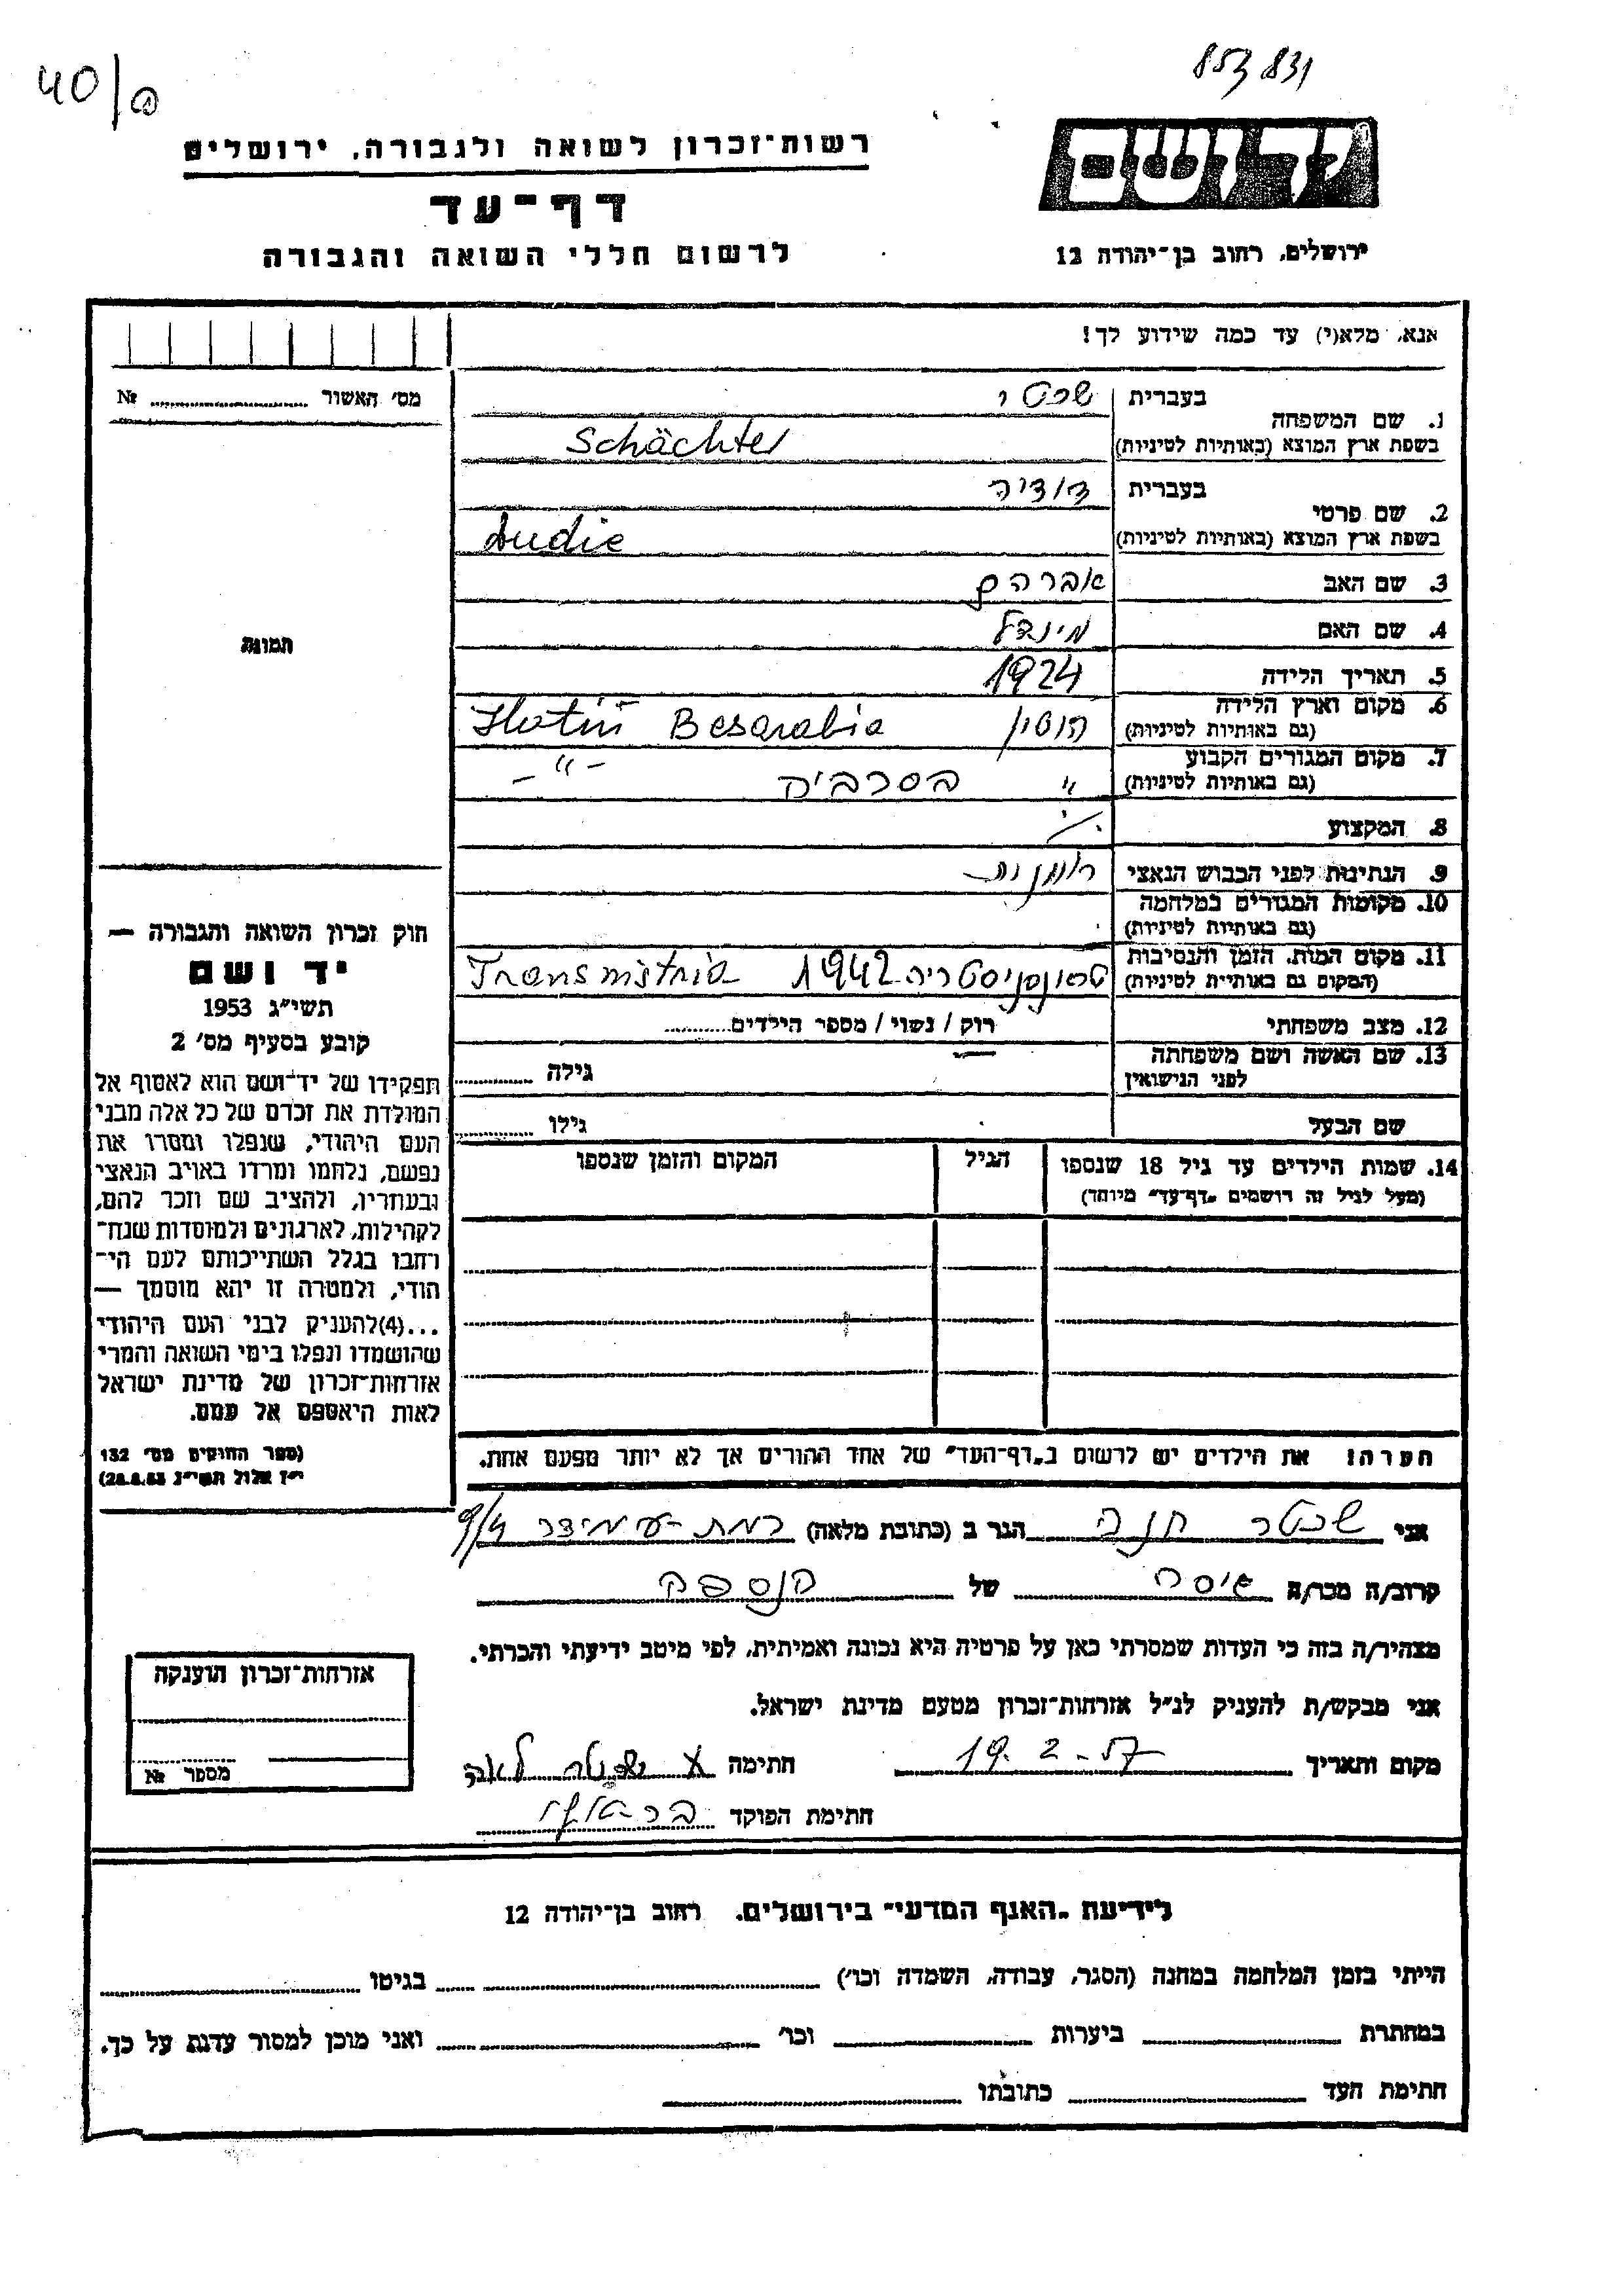 40/
853 831
יד ושם
רשות־זכרון לשואה ולגבורה, ירושלים
דף־עד
לרשום חללי השואה והגבורה
ירושלים, רחוב בן־יהודה 12
אנא, מלא(י) עד כמה שידוע לך!
מס׳ האשור № ........
1. שם המשפחה
בעברית שכטר
בשפת ארץ המוצא (באותיות לטיניות) Schächter
2. שם פרטי
בעברית דודיה
בשפת ארץ המוצא (באותיות לטיניות) dudie
3. שם האב אברהם
4. שם האם מינדל
5. תאריך הלידה 1924
6. מקום וארץ הלידה חוטין Hotin Besarabia
(גם באותיות לטיניות)
7. מקום המגורים הקבוע
(גם באותיות לטיניות) " בסרביה -"-
8. המקצוע ./.
9. הנתינות לפני הכבוש הנאצי רומנית
10. מקומות המגורים במלחמה
(גם באותיות לטיניות)
11. מקום המות, הזמן והנסיבות
(המקום גם באותיות לטיניות) טרנסניסטריה 1942 Transnistria
12. מצב משפחתי רוק / נשוי / מספר הילדים........
13. שם האשה ושם משפחתה
לפני הנישואין גילה ........
שם הבעל גילו ........
14. שמות הילדים עד גיל 18 שנספו הגיל המקום והזמן שנספו
(מעל לגיל זה רושמים „דף־עד" מיוחד)
הערה! את הילדים יש לרשום ב„דף־העד" של אחד ההורים אך לא יותר מפעם אחת.
תמונה
חוק זכרון השואה והגבורה —
יד ושם
תשי״ג 1953
קובע בסעיף מס׳ 2
תפקידו של יד־ושם הוא לאסוף אל
המולדת את זכרם של כל אלה מבני
העם היהודי, שנפלו ומסרו את
נפשם, נלחמו ומרדו באויב הנאצי
ובעוזריו, ולהציב שם וזכר להם,
לקהילות, לארגונים ולמוסדות שנח־
רחבו בגלל השתייכותם לעם הי־
הודי, ולמטרה זו יהא מוסמך —
...(4)להעניק לבני העם היהודי
שהושמדו ונפלו בימי השואה והמרי
אזרחות־זכרון של מדינת ישראל
לאות היאספם אל עמם.
(ספר החוקים מס׳ 132
י״ז אלול תשי״ג 28.8.53)
אני שכטר חנה הגר ב (כתובת מלאה) רמת-עמידר 9/4
קרוב/ה מכר/ה גיסה של הנספה
מצהיר/ה בזה כי העדות שמסרתי כאן על פרטיה היא נכונה ואמיתית, לפי מיטב ידיעתי והכרתי.
אני מבקש/ת להעניק לנ״ל אזרחות־זכרון מטעם מדינת ישראל.
מקום ותאריך 19.2-57 חתימה
חתימת הפוקד
אזרחות־זכרון הוענקה
מספר №
לידיעת „האגף המדעי" בירושלים, רחוב בן־יהודה 12
הייתי בזמן המלחמה במחנה (הסגר, עבודה, השמדה וכו׳) ........ בגיטו ........
במחתרת ........ ביערות ........ וכו׳ ........ ואני מוכן למסור עדות על כך.
חתימת העד ........ כתובתו ........